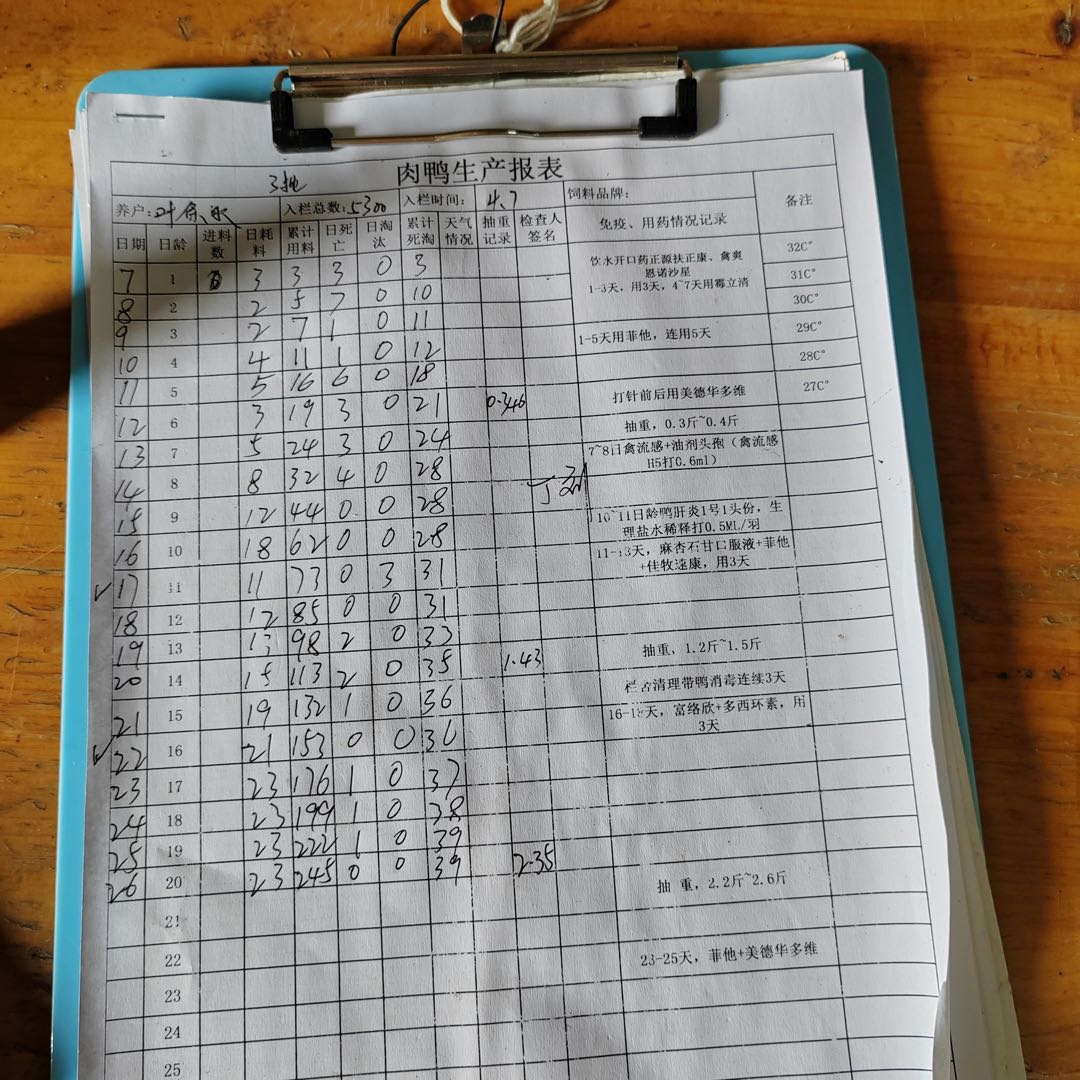 肉鸭生产报表
3批
养户: 叶 入栏总数: 5300 入栏时间: 4.7 饲料品牌: 备注
日期 日龄 进料数 日耗料 累计用料 日死亡 日淘汰 累计死淘 天气情况 抽重记录 检查人签名 免疫、用药情况记录
7 1 3 3 3 0 3 饮水开口药正源扶正康、禽爽 32C°
恩诺沙星
8 2 2 5 7 0 10 1-3天，用3天，4~7天用霉立清 31C°
30C°
9 3 2 7 1 0 11 1-5天用菲他，连用5天 29C°
10 4 4 11 1 0 12 28C°
11 5 5 16 6 0 18 打针前后用美德华多维 27C°
12 6 3 19 3 0 21 0.346 抽重，0.3斤~0.4斤
13 7 5 24 3 0 24 7~8日禽流感+油剂头孢（禽流感
H5打0.6ml）
14 8 8 32 4 0 28
15 9 12 44 0 0 28 10~11日龄鸭肝炎1号1头份，生
理盐水稀释打0.5ML/羽
16 10 18 62 0 0 28 11-13天，麻杏石甘口服液+菲他
+佳牧速康，用3天
✓17 11 11 73 0 3 31
18 12 12 85 0 0 31
19 13 13 98 2 0 33 抽重，1.2斤~1.5斤
20 14 15 113 2 0 35 1.43 栏舍清理带鸭消毒连续3天
21 15 19 132 1 0 36 16-18天，富络欣+多西环素，用
3天
✓22 16 21 153 0 0 36
23 17 23 176 1 0 37
24 18 23 199 1 0 38
25 19 23 222 1 0 39
26 20 23 245 0 0 39 2.35 抽 重，2.2斤~2.6斤
21
22 23-25天，菲他+美德华多维
23
24
25